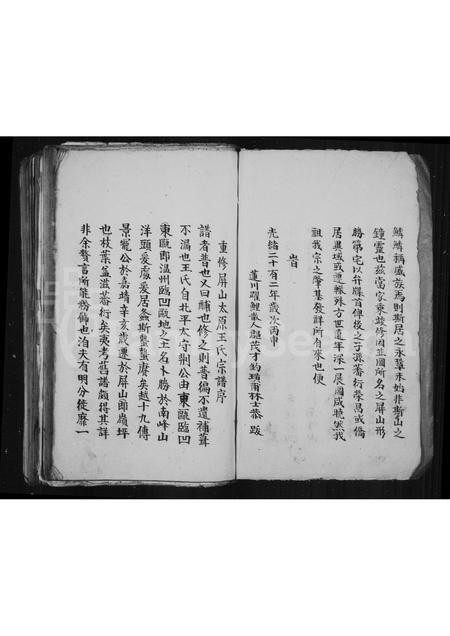 鱗稱盛族焉則斯居之永肇未始非衡山之
鐘靈也茲當家乘竣修因並圖所名之屏山形
勝第宅以弁牒首俾後之子孫蕃衍榮昌或僑
居異域或遷轍殊方世遠年深一展圖咸曉然我
祖我宗之肇基發祥所有來也便
旹
光緒二十有二年歲次丙申
蓮川躍鯉散人愚茂才鈞璜甫林恭跋
重修屏山太原王氏宗譜序
譜者普也又曰脯也修之則普徧不遺補葺
不漏也王氏自北平太守荆公由東甌臨凹
東甌即溫州臨凹甌地之土名卜勝於南峰山
洋頭爰處爰居螽斯蟄蟄賡矣越十九傳
景寵公於嘉靖辛亥歲遷於屏山即嶺坪
也枝葉益滋蕃衍矣爽考舊譜頗得其詳
非余贅言所能粉飾也洎夫有明分徙靡一